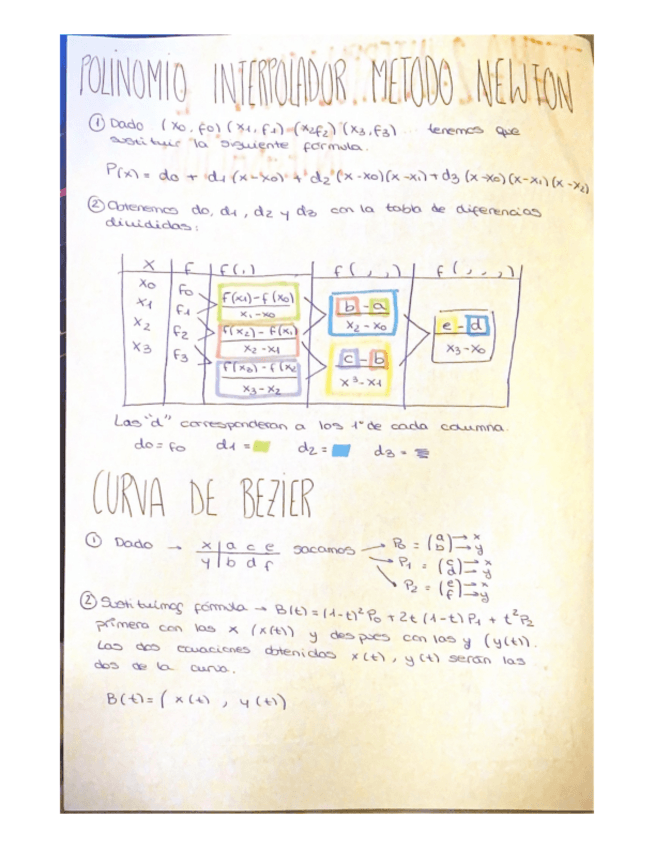 POLINOMIO INTERPOLADOR METODO NEWTON
① Dado (x0, f0) (x1, f1) (x2 f2) (x3, f3) ... tenemos que
sustituir la siguiente fórmula.
P(x) = d0 + d1 (x-x0) + d2 (x-x0)(x-x1) + d3 (x-x0)(x-x1)(x-x2)
② Obtenemos d0, d1, d2 y d3 con la tabla de diferencias
divididas:
x f f(,) f(,,) f(,,,)
x0 f0
x1 f1
x2 f2
x3 f3
f(x1)-f(x0)
x1-x0
f(x2)-f(x1)
x2-x1
f(x3)-f(x2
x3-x2
b - a
x2-x0
c - b
x3-x1
e - d
x3-x0
Las "d" corresponderan a los 1º de cada columna.
d0 = f0 d1 = d2 = d3 =
CURVA DE BEZIER
① Dado → x | a c e sacamos → P0 = (a b) → x → y
y | b d f → P1 = (c d) → x → y
→ P2 = (e f) → x → y
② Sustituimos fórmula → B(t) = (1-t)²P0 + 2t (1-t) P1 + t²P2
primero con las x (x(t)) y despues con las y (y(t)).
Las dos ecuaciones obtenidas x(t), y(t) serán las
dos de la curva.
B(t) = ( x(t) , y(t))